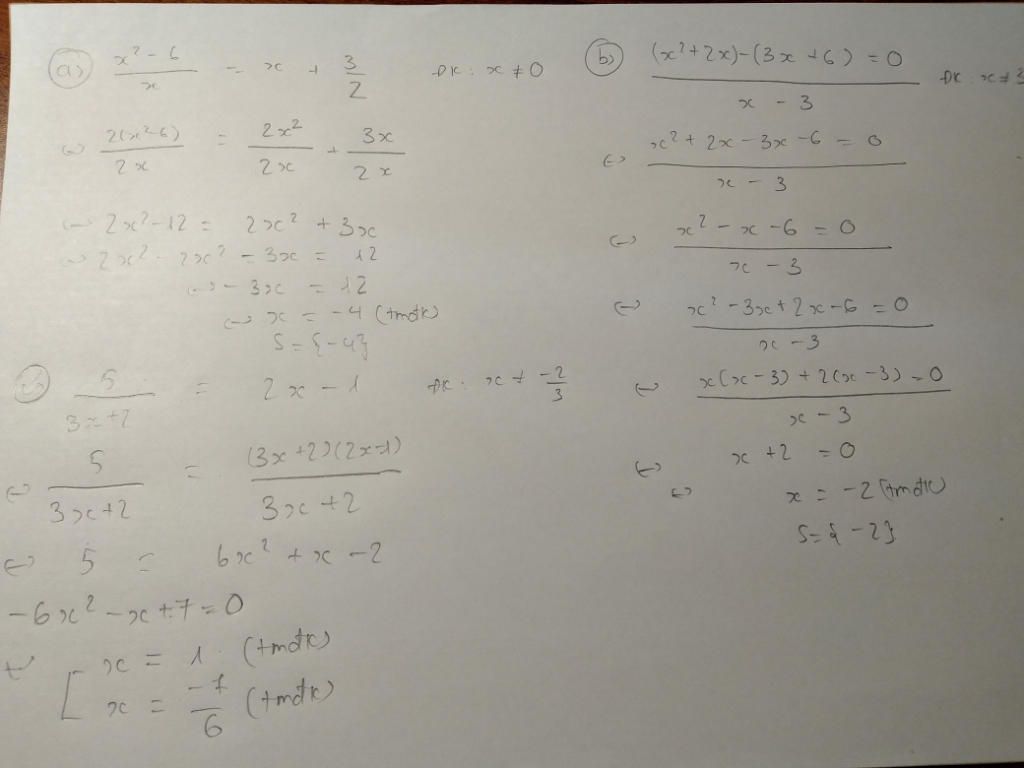 a) x² - 6 / x = x + 3/2 ĐK: x ≠ 0
⇔ 2(x²-6) / 2x = 2x² / 2x + 3x / 2x
⇔ 2x² - 12 = 2x² + 3x
⇔ 2x² - 2x² - 3x = 12
⇔ - 3x = 12
⇔ x = -4 (tmđk)
S = {-4}
c) 5 / 3x+2 = 2x - 1 ĐK: x ≠ -2/3
⇔ 5 / 3x+2 = (3x+2)(2x-1) / 3x+2
⇔ 5 = 6x² + x - 2
-6x² - x + 7 = 0
⇔ [ x = 1 (tmđk)
x = -7/6 (tmđk)
b) (x²+2x)-(3x+6) = 0 / x - 3 ĐK: x ≠ 3
⇔ x² + 2x - 3x - 6 = 0 / x - 3
⇔ x² - x - 6 = 0 / x - 3
⇔ x² - 3x + 2x - 6 = 0 / x - 3
⇔ x(x-3) + 2(x-3) = 0 / x - 3
⇔ x + 2 = 0
⇔ x = -2 (tmđk)
S = {-2}